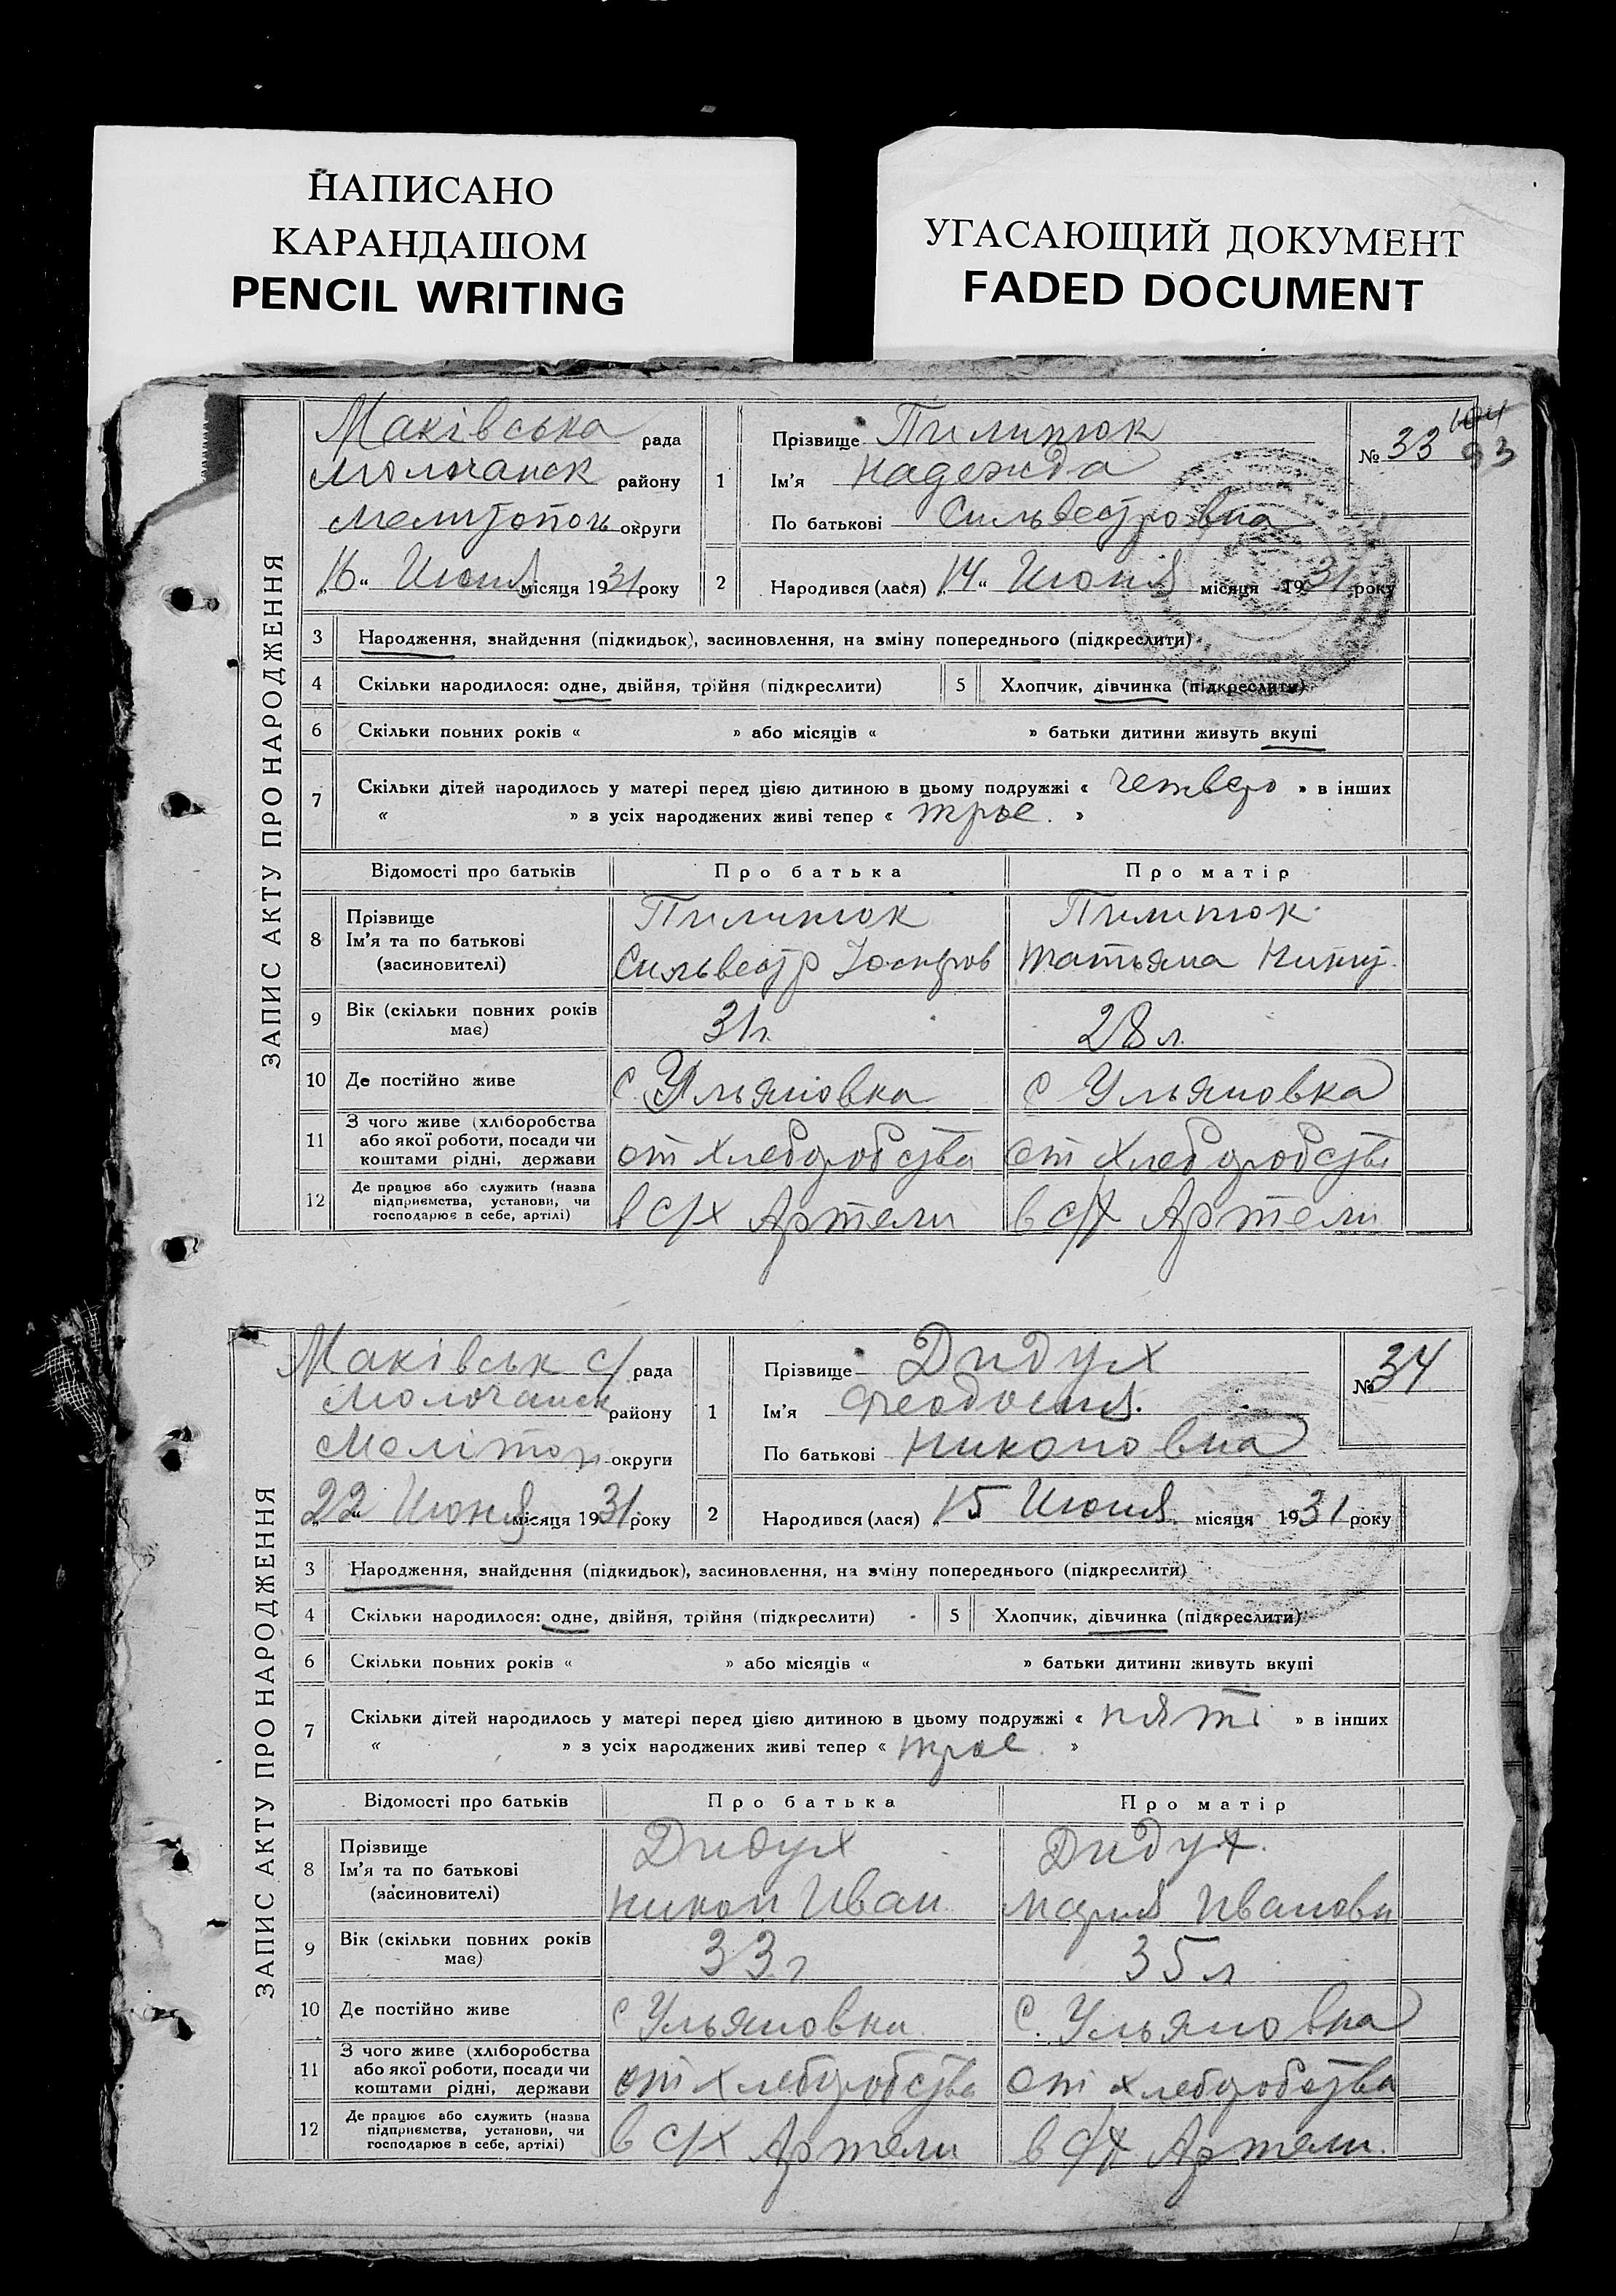 НАПИСАНО
КАРАНДАШОМ
PENCIL WRITING
УГАСАЮЩИЙ ДОКУМЕНТ
FADED DOCUMENT
ЗАПИС АКТУ ПРО НАРОДЖЕННЯ
Маківська рада
Молочанск району
Мелитополь округи
„16“ Июня місяця 1931 року
1 Прізвище Пилипюк
Ім'я Надежда
По батькові Сильвестровна
№ 33
104
93
2 Народився (лася) „14“ Июня місяця 1931 року
3 Народження, знайдення (підкидьок), засиновлення, на зміну попереднього (підкреслити)
4 Скільки народилося: одне, двійня, трійня (підкреслити) 5 Хлопчик, дівчинка (підкреслити)
6 Скільки повних років « » або місяців « » батьки дитини живуть вкупі
7 Скільки дітей народилось у матері перед цією дитиною в цьому подружжі « четверо » в інших
« » з усіх народжених живі тепер « трое »
Відомості про батьків Про батька Про матір
8 Прізвище Пилипюк Пилипюк
Ім'я та по батькові
(засиновителі) Сильвестр Татьяна
9 Вік (скільки повних років має) 31 г. 28 л.
10 Де постійно живе с. Ульяновка с Ульяновка
11 З чого живе (хліборобства
або якої роботи, посади чи
коштами рідні, держави от хлеборобства от хлеборобств
12 Де працює або служить (назва
підприємства, установи, чи
господарює в себе, артілі) в с/х Артели в с/х Артели
ЗАПИС АКТУ ПРО НАРОДЖЕННЯ
Маківськ с/рада
Молочанск району
Мелітоп округи
„22“ Июня місяця 1931 року
1 Прізвище Дидух
Ім'я Феодосия
По батькові Никоновна
№ 34
2 Народився (лася) „15 Июня місяця 1931 року
3 Народження, знайдення (підкидьок), засиновлення, на зміну попереднього (підкреслити)
4 Скільки народилося: одне, двійня, трійня (підкреслити) 5 Хлопчик, дівчинка (підкреслити)
6 Скільки повних років « » або місяців « » батьки дитини живуть вкупі
7 Скільки дітей народилось у матері перед цією дитиною в цьому подружжі « пяті » в інших
« » з усіх народжених живі тепер « трое »
Відомості про батьків Про батька Про матір
8 Прізвище Дидух Дидух
Ім'я та по батькові
(засиновителі) Никон Иван Мария Ивановн
9 Вік (скільки повних років має) 33 г 35 л
10 Де постійно живе с Ульяновка с. Ульяновка
11 З чого живе (хліборобства
або якої роботи, посади чи
коштами рідні, держави от хлеборобства от хлеборобства
12 Де працює або служить (назва
підприємства, установи, чи
господарює в себе, артілі) в с/х Артели в с/х Артели.